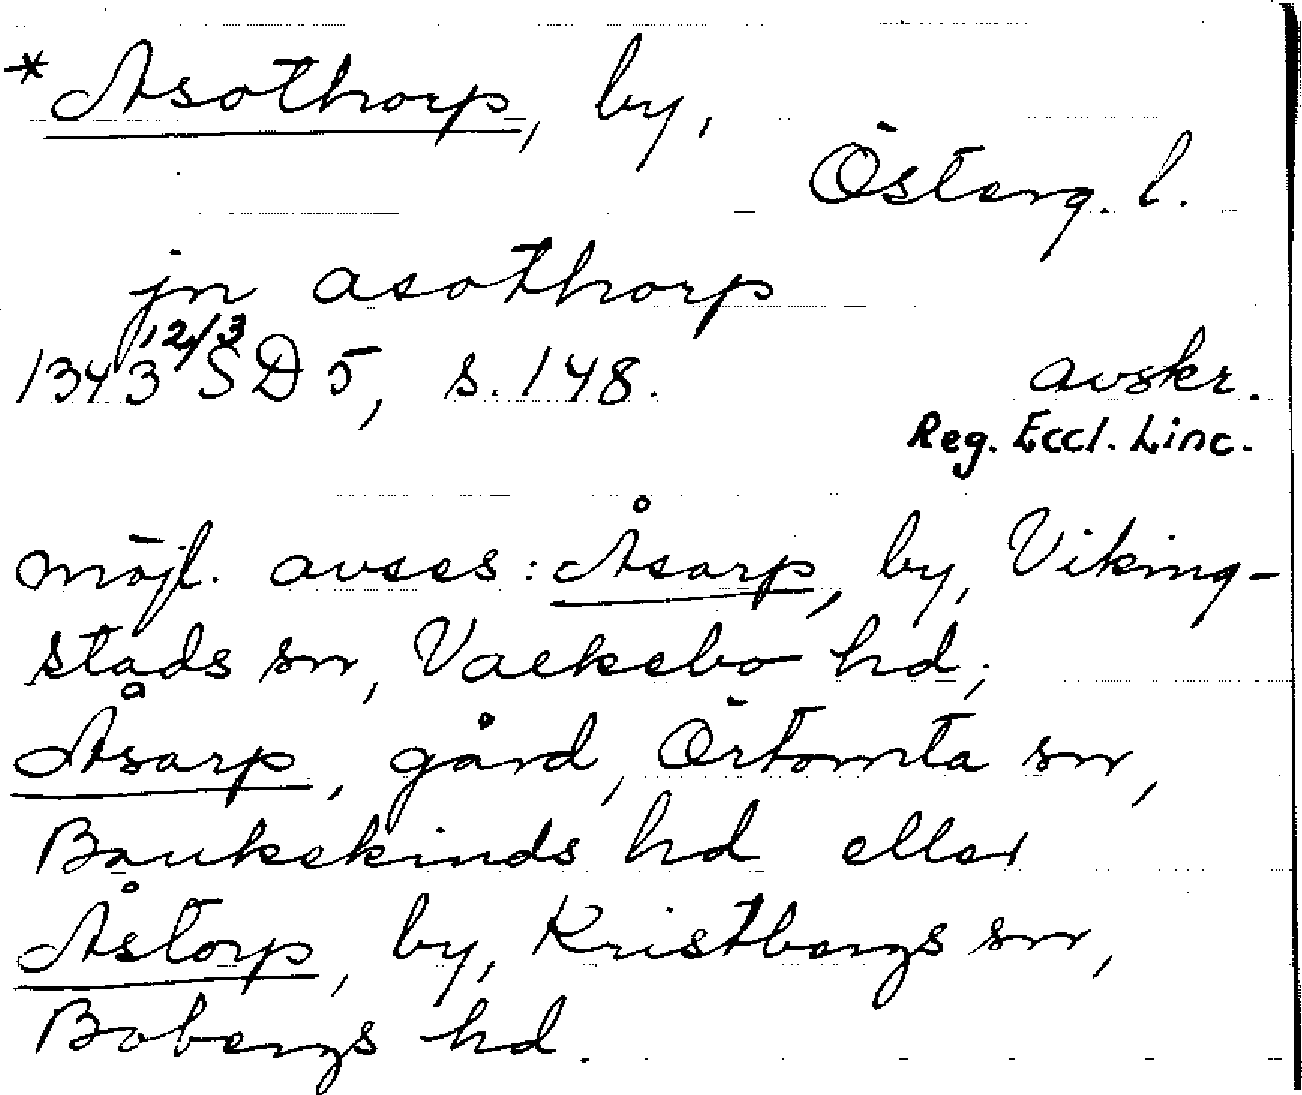 *Asothorp, by,
Österg. l.
jn asothorp
1343 12/3 SD 5, s. 148.
avskr.
Reg. Eccl. Linc.
möjl. avses: Åsarp, by, Viking-
stads sn, Valkebo hd;
Åsarp, gård, Örtomta sn,
Bankekinds hd eller
Åstorp, by, Kristbergs sn,
Bobergs hd.